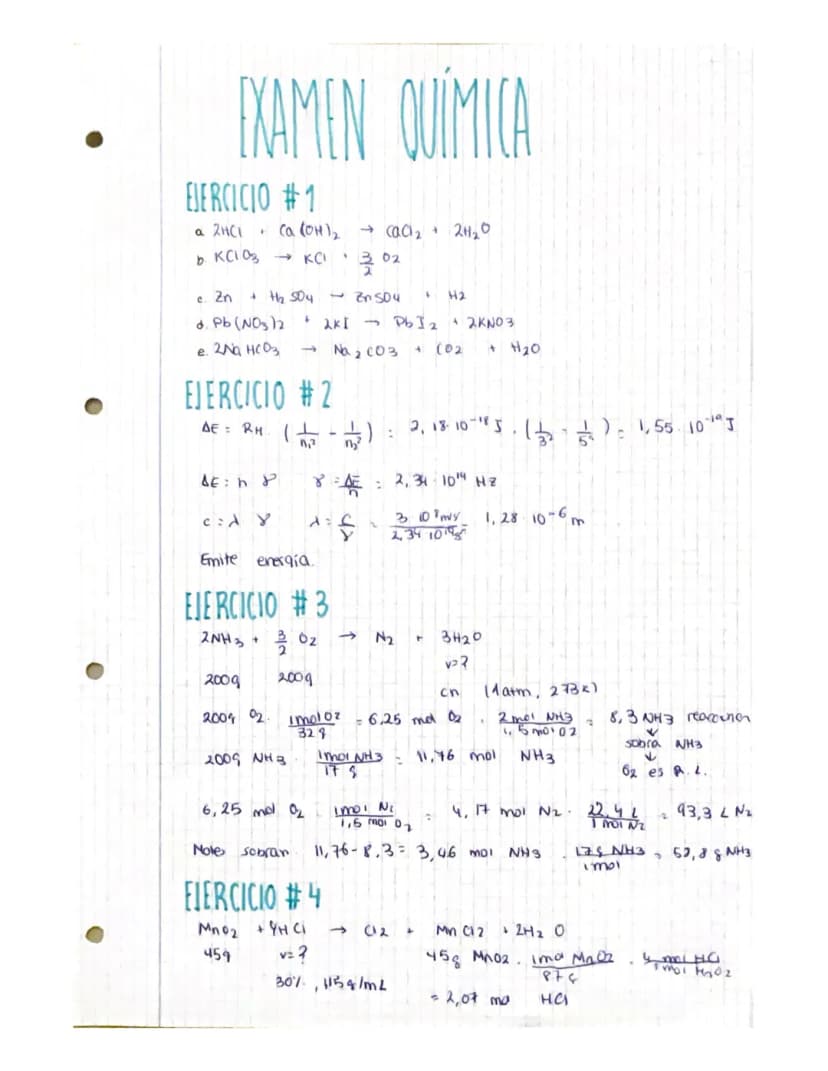 EXAMEN QUÍMICA
EJERCICIO #1
a. 2HCl + Ca(OH)2 → CaCl2 + 2H2O
b. KClO3 → KCl + 3/2 O2
c. Zn + H2SO4 → ZnSO4 + H2
d. Pb(NO3)2 + 2KI → PbI2 + 2KNO3
e. 2NaHCO3 → Na2CO3 + CO2 + H2O
EJERCICIO #2
ΔE = RH (1/n1² - 1/n2²) = 2,18·10⁻¹⁸ J · (1/3² - 1/5²) = 1,55·10⁻¹⁹ J
ΔE = h γ γ = ΔE/h = 2,34·10¹⁴ HZ
c = λ γ λ = c/γ = 3·10⁸ m/s / 2,34·10¹⁴ s⁻¹ = 1,28·10⁻⁶ m
Emite energía.
EJERCICIO #3
2NH3 + 3/2 O2 → N2 + 3H2O
200g 200g v=?
cn (1atm, 273K)
200g O2 · 1mol O2/32g = 6,25 mol O2 · 2 mol NH3/1,5 mol O2 = 8,3 NH3 reaccionan
sobra NH3
200g NH3 · 1mol NH3/17g = 11,76 mol NH3
O2 es R.L.
6,25 mol O2 · 1mol N2/1,5 mol O2 = 4,17 mol N2 · 22,4 L/1 mol N2 = 93,3 L N2
Moles sobran 11,76-8,3 = 3,46 mol NH3 · 17g NH3/1mol = 58,8 g NH3
EJERCICIO #4
MnO2 + 4HCl → Cl2 + MnCl2 + 2H2O
45g v=? 45g MnO2 · 1mol MnO2/87g · 4 mol HCl/1 mol MnO2
30%, 1,15g/mL
= 2,07 mol HCl